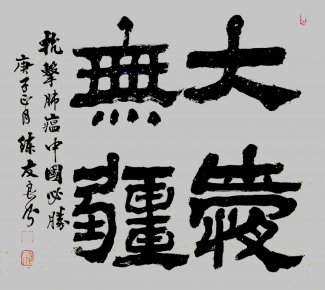 大愛
無疆
抗擊肺瘟中國必勝
庚子正月練友良书